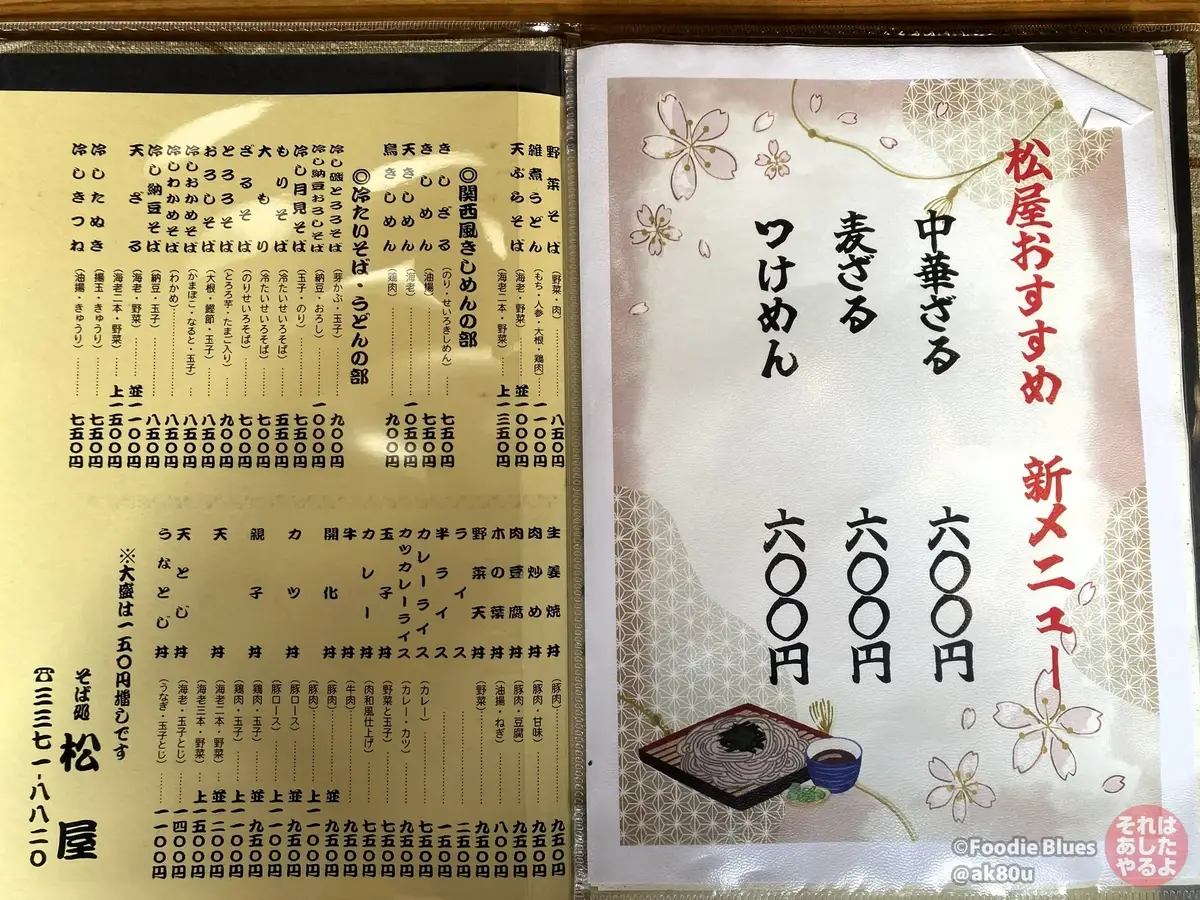 松屋おすすめ　新メニュー
中華ざる　六〇〇円
麦ざる　六〇〇円
つけめん　六〇〇円
野菜そば（野菜・肉）……八五〇円
雑煮うどん（もち・人参・大根・鶏肉）一一〇〇円
天ぷらそば（海老・野菜）……並一〇〇〇円
（海老二本・野菜）……上一三五〇円
◎関西風きしめんの部
きしざる（のり・せいろきしめん）……七五〇円
きしめん（油揚）……七五〇円
天きしめん（海老）……一〇五〇円
鳥きしめん（鶏肉）……九〇〇円
◎冷たいそば・うどんの部
冷し磯とろろそば（芽かぶ・玉子）……九〇〇円
冷し納豆おろしそば（納豆・おろし）……一〇〇〇円
冷し月見そば（玉子・のり）……七五〇円
もりそば（冷たいせいろそば）……五五〇円
大もり（冷たいせいろそば）……七〇〇円
ざるそば（のりせいろそば）……七〇〇円
とろろそば（とろろ芋・たまご入り）……九〇〇円
おろしそば（大根・鰹節・玉子）……八五〇円
冷しおかめそば（かまぼこ・なると・玉子）……八五〇円
冷しわかめそば（わかめ）……八五〇円
冷し納豆そば（納豆・玉子）……八五〇円
天ざる（海老・野菜）……並一一〇〇円
（海老二本・野菜）……上一五〇〇円
冷したぬき（揚玉・きゅうり）……七五〇円
冷しきつね（油揚・きゅうり）……七五〇円
生姜焼丼（豚肉）……九五〇円
肉炒め丼（豚肉・甘味）……九五〇円
肉豆腐丼（豚肉・豆腐）……九五〇円
木の葉丼（油揚・ねぎ）……八〇〇円
野菜天丼（野菜）……九五〇円
ライス……二五〇円
半ライス……一五〇円
カレーライス（カレー）……七五〇円
カツカレーライス（カレー・カツ）……九五〇円
玉子丼（野菜と玉子）……七五〇円
カレー丼（肉和風仕上げ）……七五〇円
牛丼（牛肉）……九五〇円
開化丼（豚肉）……並九五〇円
（豚肉）……上一一〇〇円
カツ丼（豚ロース）……並九五〇円
（豚ロース）……上一二〇〇円
親子丼（鶏肉・玉子）……並九五〇円
（鶏肉・玉子）……上一一〇〇円
天丼（海老二本・野菜）……並一二〇〇円
（海老三本・野菜）……上一五〇〇円
天とじ丼（海老・玉子とじ）……一四〇〇円
うなとじ丼（うなぎ・玉子とじ）……一一〇〇円
※大盛は一五〇円増しです
そば処　松屋
☎三三七一-八八二〇
©Foodie Blues
@ak80u
それは
あした
やるよ